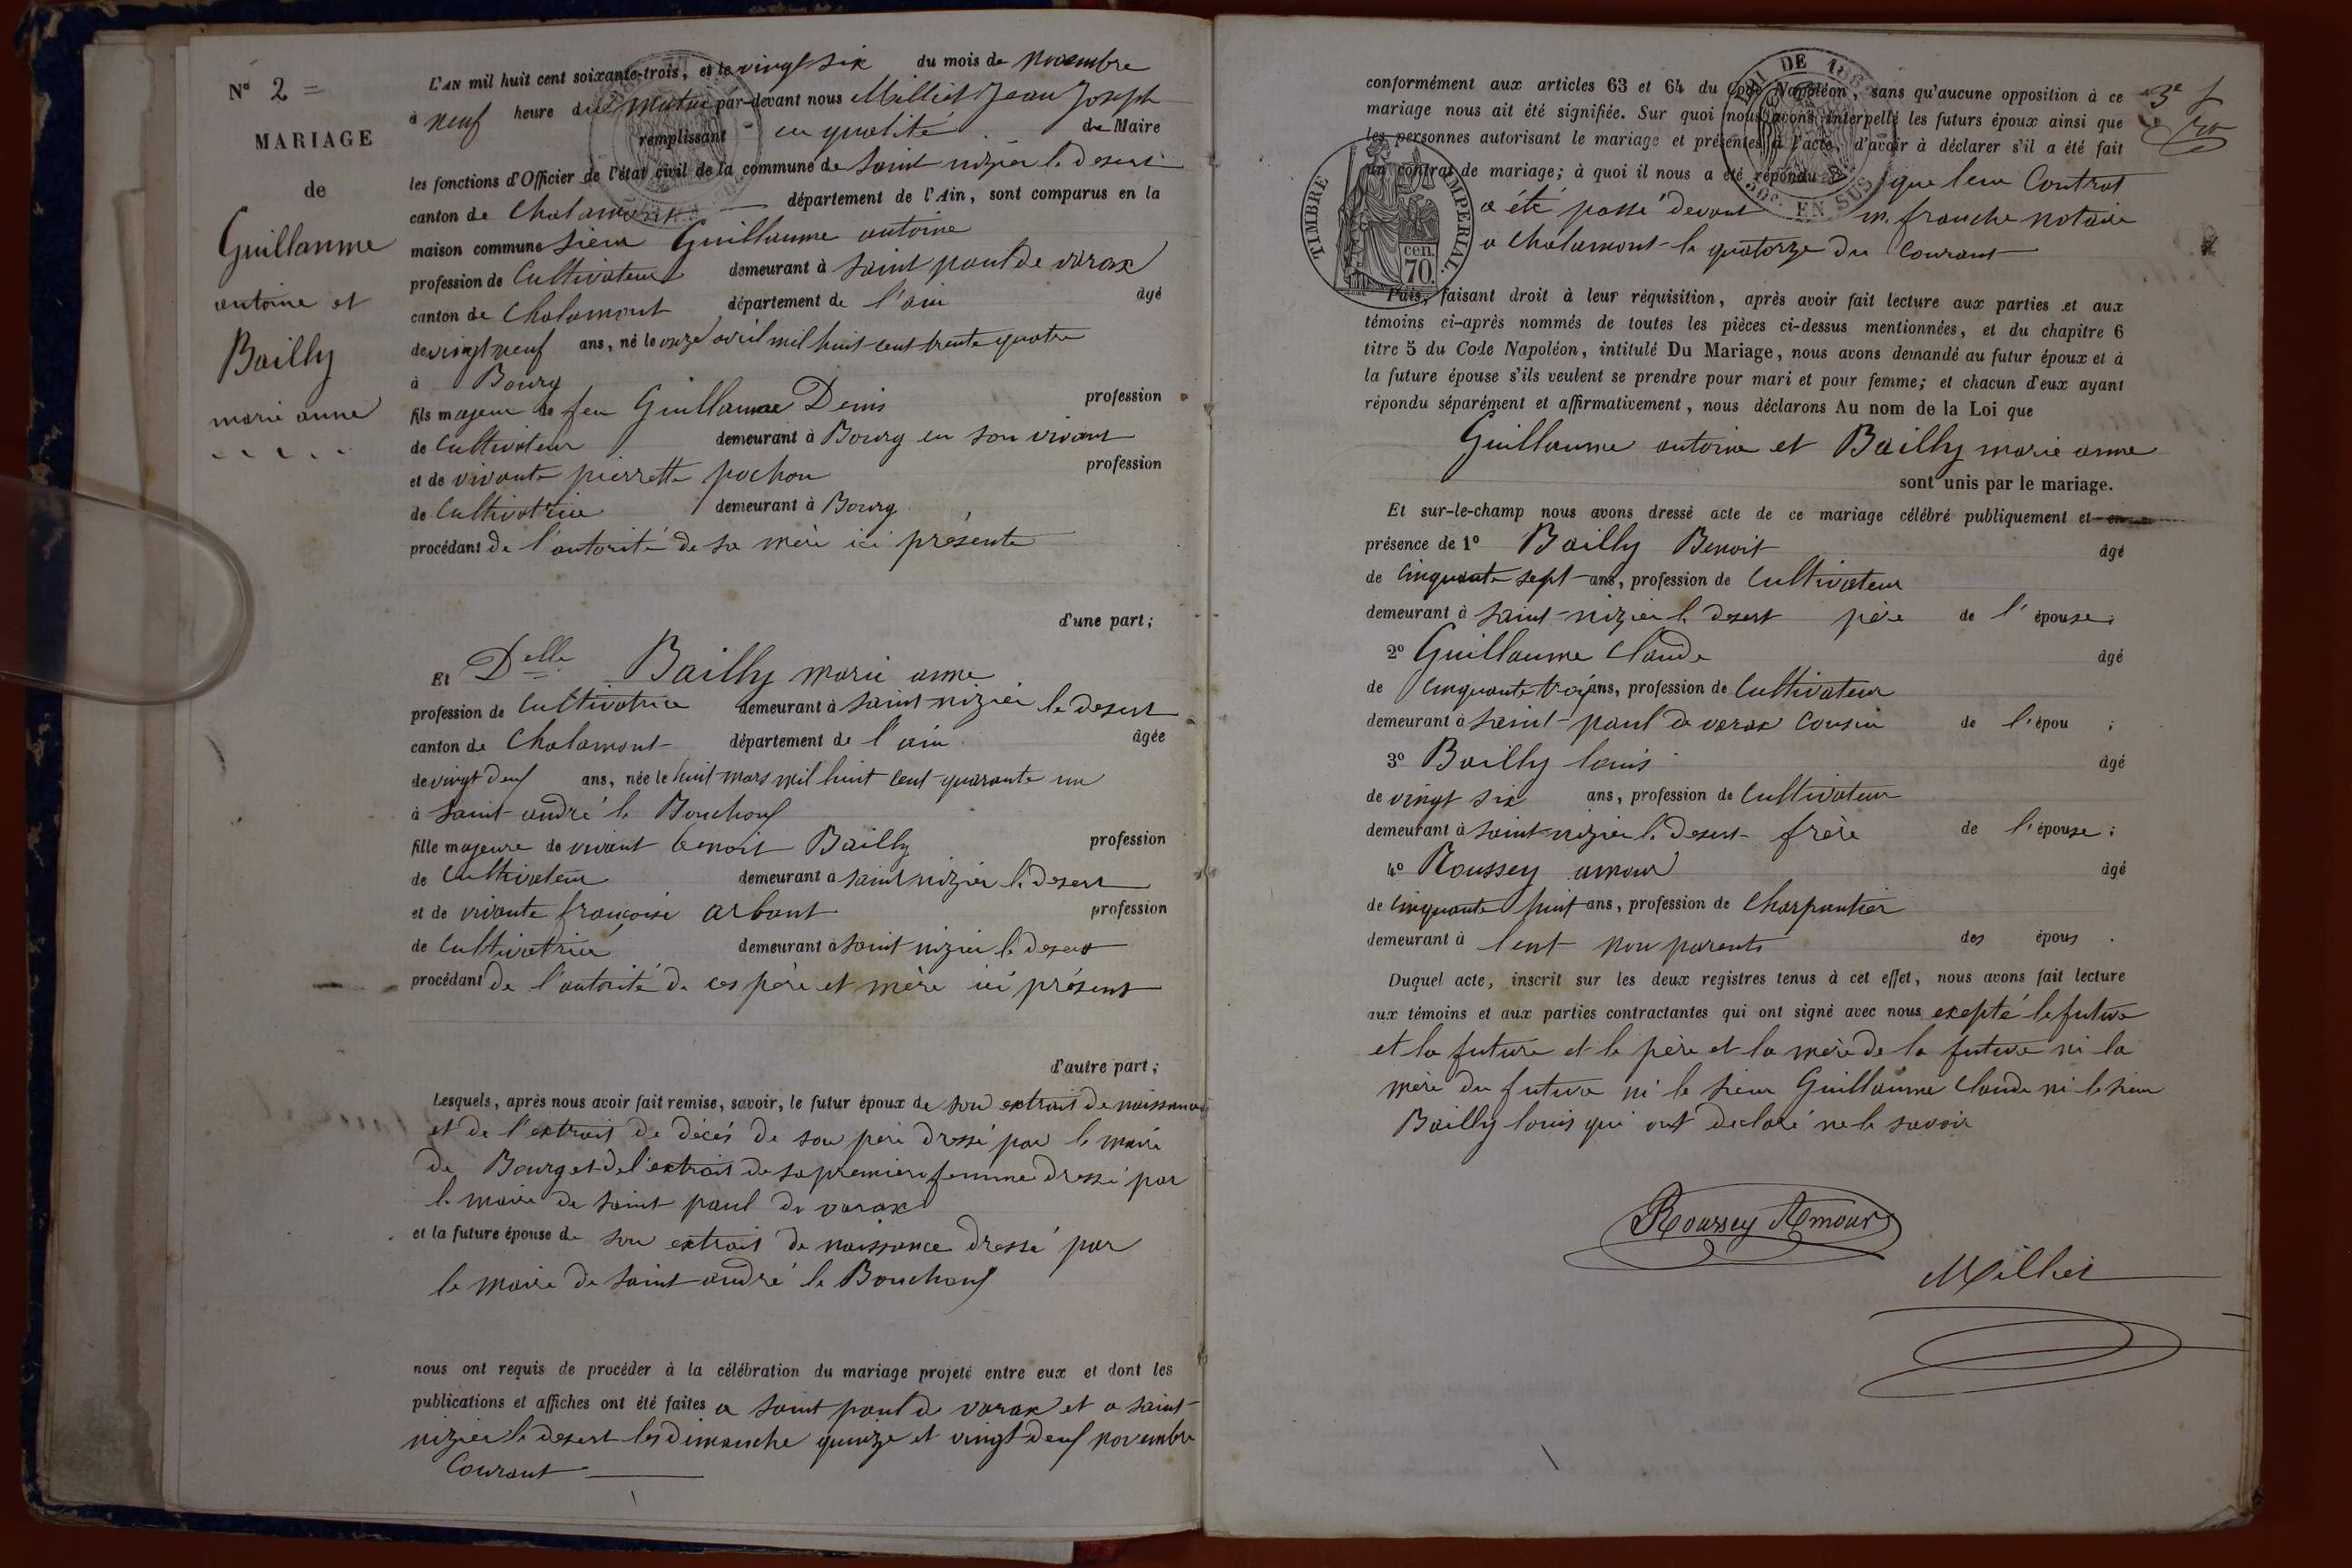 N° 2 =
MARIAGE
de
Guillaume
antoine et
Bailly
marie anne
L'AN mil huit cent soixante-trois, et le vingt six du mois de novembre
à neuf heure du matin par-devant nous Milliet Jean Joseph
remplissant en qualité de Maire
les fonctions d'Officier de l'état civil de la commune de saint nizier le desert
canton de Chalamont département de l'Ain, sont comparus en la
maison commune sieur Guillaume antoine
profession de Cultivateur demeurant à saint paul de varax
canton de Chalamont département de l'ain âgé
de vingt neuf ans, né le onze avril mil huit cent trente quatre
à Bourg
fils majeur de feu Guillaume Denis profession
de Cultivateur demeurant à Bourg en son vivant
et de vivante pierrette pochon profession
de Cultivatrice demeurant à Bourg
procédant de l'autorité de sa mère ici présente
d'une part;
Et Delle Bailly marie anne
profession de Cultivatrice demeurant à saint nizier le desert
canton de Chalamont département de l'ain âgée
de vingt deux ans, née le huit mars mil huit cent quarante un
à saint andré le Bouchoux
fille majeure de vivant benoit Bailly profession
de Cultivateur demeurant à saint nizier le desert
et de vivante francoise arbant profession
de Cultivatrice demeurant à saint nizier le desert
procédant de l'autorité de ces père et mère ici présent
d'autre part;
Lesquels, après nous avoir fait remise, savoir, le futur époux de son extrait de naissance
et de l'extrait de décés de son père dressé par le maire
de Bourg et de l'extrait de sa premiere femme dressé par
le maire de saint paul de varax
et la future épouse de son extrait de naissance dressé par
le maire de saint andré le Bouchoux
nous ont requis de procéder à la célébration du mariage projeté entre eux et dont les
publications et affiches ont été faites a saint paul de varax et a saint
nizier le desert les dimanche quinze et vingt deux novembre
Courant
conformément aux articles 63 et 64 du Code Napoléon, sans qu'aucune opposition à ce
mariage nous ait été signifiée. Sur quoi nous avons interpellé les futurs époux ainsi que
les personnes autorisant le mariage et présentes à l'acte, d'avoir à déclarer s'il a été fait
un contrat de mariage; à quoi il nous a été répondu que leur Contrat
a été passé devant m. franche notaire
a Chalamont le quatorze du Courant
TIMBRE IMPERIAL
cen. 70.
LOI DE 186
50c. EN SUS
Puis, faisant droit à leur réquisition, après avoir fait lecture aux parties et aux
témoins ci-après nommés de toutes les pièces ci-dessus mentionnées, et du chapitre 6
titre 5 du Code Napoléon, intitulé Du Mariage, nous avons demandé au futur époux et à
la future épouse s'ils veulent se prendre pour mari et pour femme; et chacun d'eux ayant
répondu séparément et affirmativement, nous déclarons Au nom de la Loi que
Guillaume antoine et Bailly marie anne
sont unis par le mariage.
Et sur-le-champ nous avons dressé acte de ce mariage célébré publiquement et en
présence de 1° Bailly Benoit âgé
de Cinquante sept ans, profession de Cultivateur
demeurant à saint-nizier le desert père de l'épouse;
2° Guillaume Claude âgé
de Cinquante trois ans, profession de Cultivateur
demeurant à saint-paul de varax Cousin de l'épou ;
3° Bailly louis âgé
de vingt six ans, profession de Cultivateur
demeurant à saint nizier le desert frère de l'épouse;
4° Roussey amour âgé
de Cinquante huit ans, profession de Charpentier
demeurant à lent non parents des époux.
Duquel acte, inscrit sur les deux registres tenus à cet effet, nous avons fait lecture
aux témoins et aux parties contractantes qui ont signé avec nous excepté le future
et la future et le père et la mère de la future ni la
mère du future ni le sieur Guillaume Claude ni le sieur
Bailly louis qui ont declaré ne le savoir
Roussey Amour
Milliet